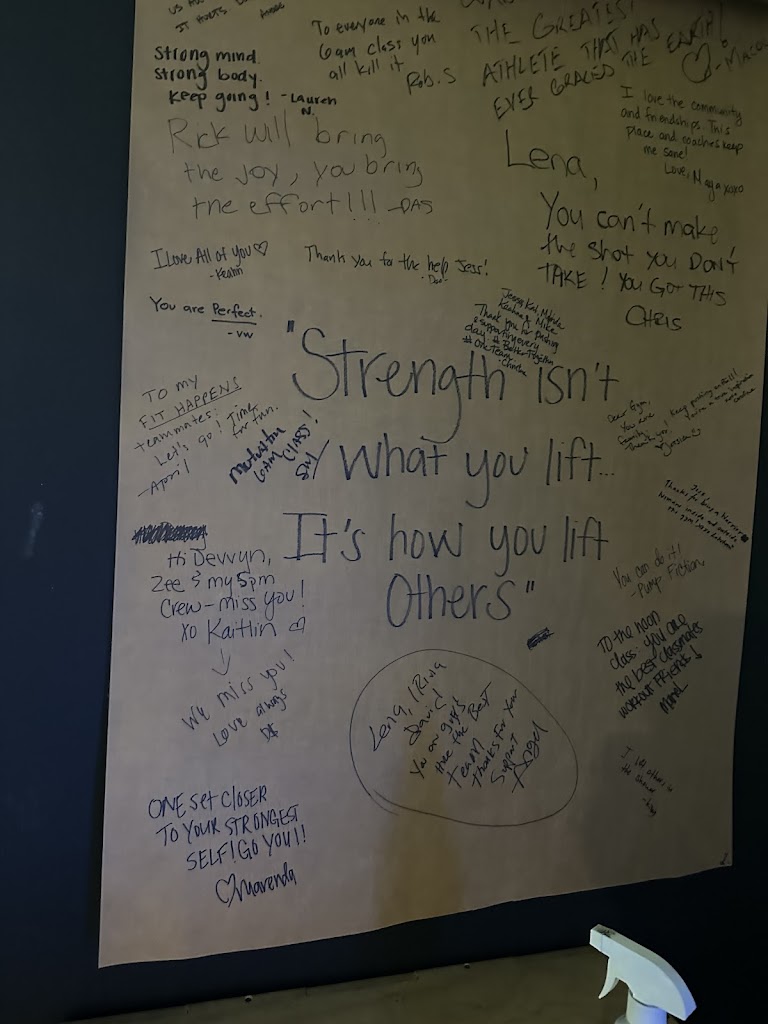 IT HURTS
To everyone in the
6am class you
all kill it
Rob.S
THE GREATEST
ATHLETE THAT HAS
EVER GRACED THE EARTH!
Strong mind.
Strong body.
Keep going! - Lauren
N.
I love the community
and friendships. This
place and coaches keep
me sane!
Love,
Rick will bring
the joy, you bring
the effort!!! -DAS
Lena,
You can't make
the shot you DON'T
TAKE! YOU GOT THIS
CHRIS
I Love All of you♡
Thank you for the help Jess!
You are Perfect.
-VW
Thank you for
day
"Strength isn't
what you lift...
It's how you lift
Others"
To my
FIT HAPPENS
teammates:
Let's go! Time
for fun.
-April
6AM CLASS!
Hi Devvyn,
Zee & my 5pm
Crew-miss you!
xo Kaitlin ♡
We miss you!
Love always
You can do it!
- Pump Fiction
To the noon
class: you are
the best classmates
workout Friends!
Lena,
David
You guys
the Best
Team
Thanks for your
Support
Angel
ONE Set CLOSER
TO YOUR STRONGEST
SELF! GO YOU!!
♡Marenda